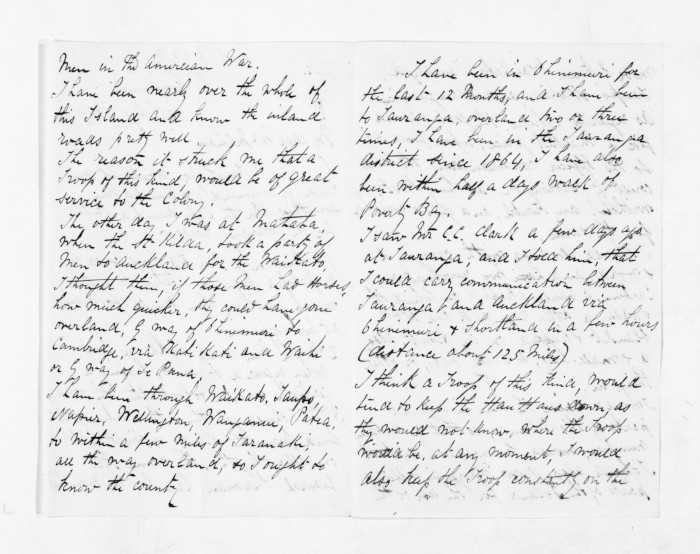 Men in the Amercian War.
I have been nearly over the whole of
this Island and know the inland
roads pretty well.
The reason it struck me that a
Troop of this Kind, would be of great
service to the Colony.
The other day, I was at Matata,
when the St Kilda, took a party of
Men to Auckland for the Waikato
I thought then, if those Men had Horses,
how much quicker, they could have gone
overland, by way of Ohinemuri to
Cambridge, via Kati Kati and Waihi
or by way of Te Puna.
I have been through Waikato, Taupo,
Napier, Wellington, Wanganui, Patea,
to within a few miles of Taranaki,
all the way overland, so I ought to
know the county
I have been in Ohinemuri for
the last 12 Months, and I have been
to Tauranga, overland two or three
times, I have been in the Tauranga
district since 1864, I have also
been within half a days walk of
Poverty Bay.
I saw Mr C.C. Clark a few days ago
at Tauranga, and I told him, that
I could carry communication between
Tauranga and Auckland via
Ohinemuri & Shortland in a few hours
(distance about 125 Miles)
I think a Troop of this Kind, would
tend to keep the Hau Haus down, as
they would not know, where the Troop
would be, at any moment, I would
also keep the Troop constantly on the